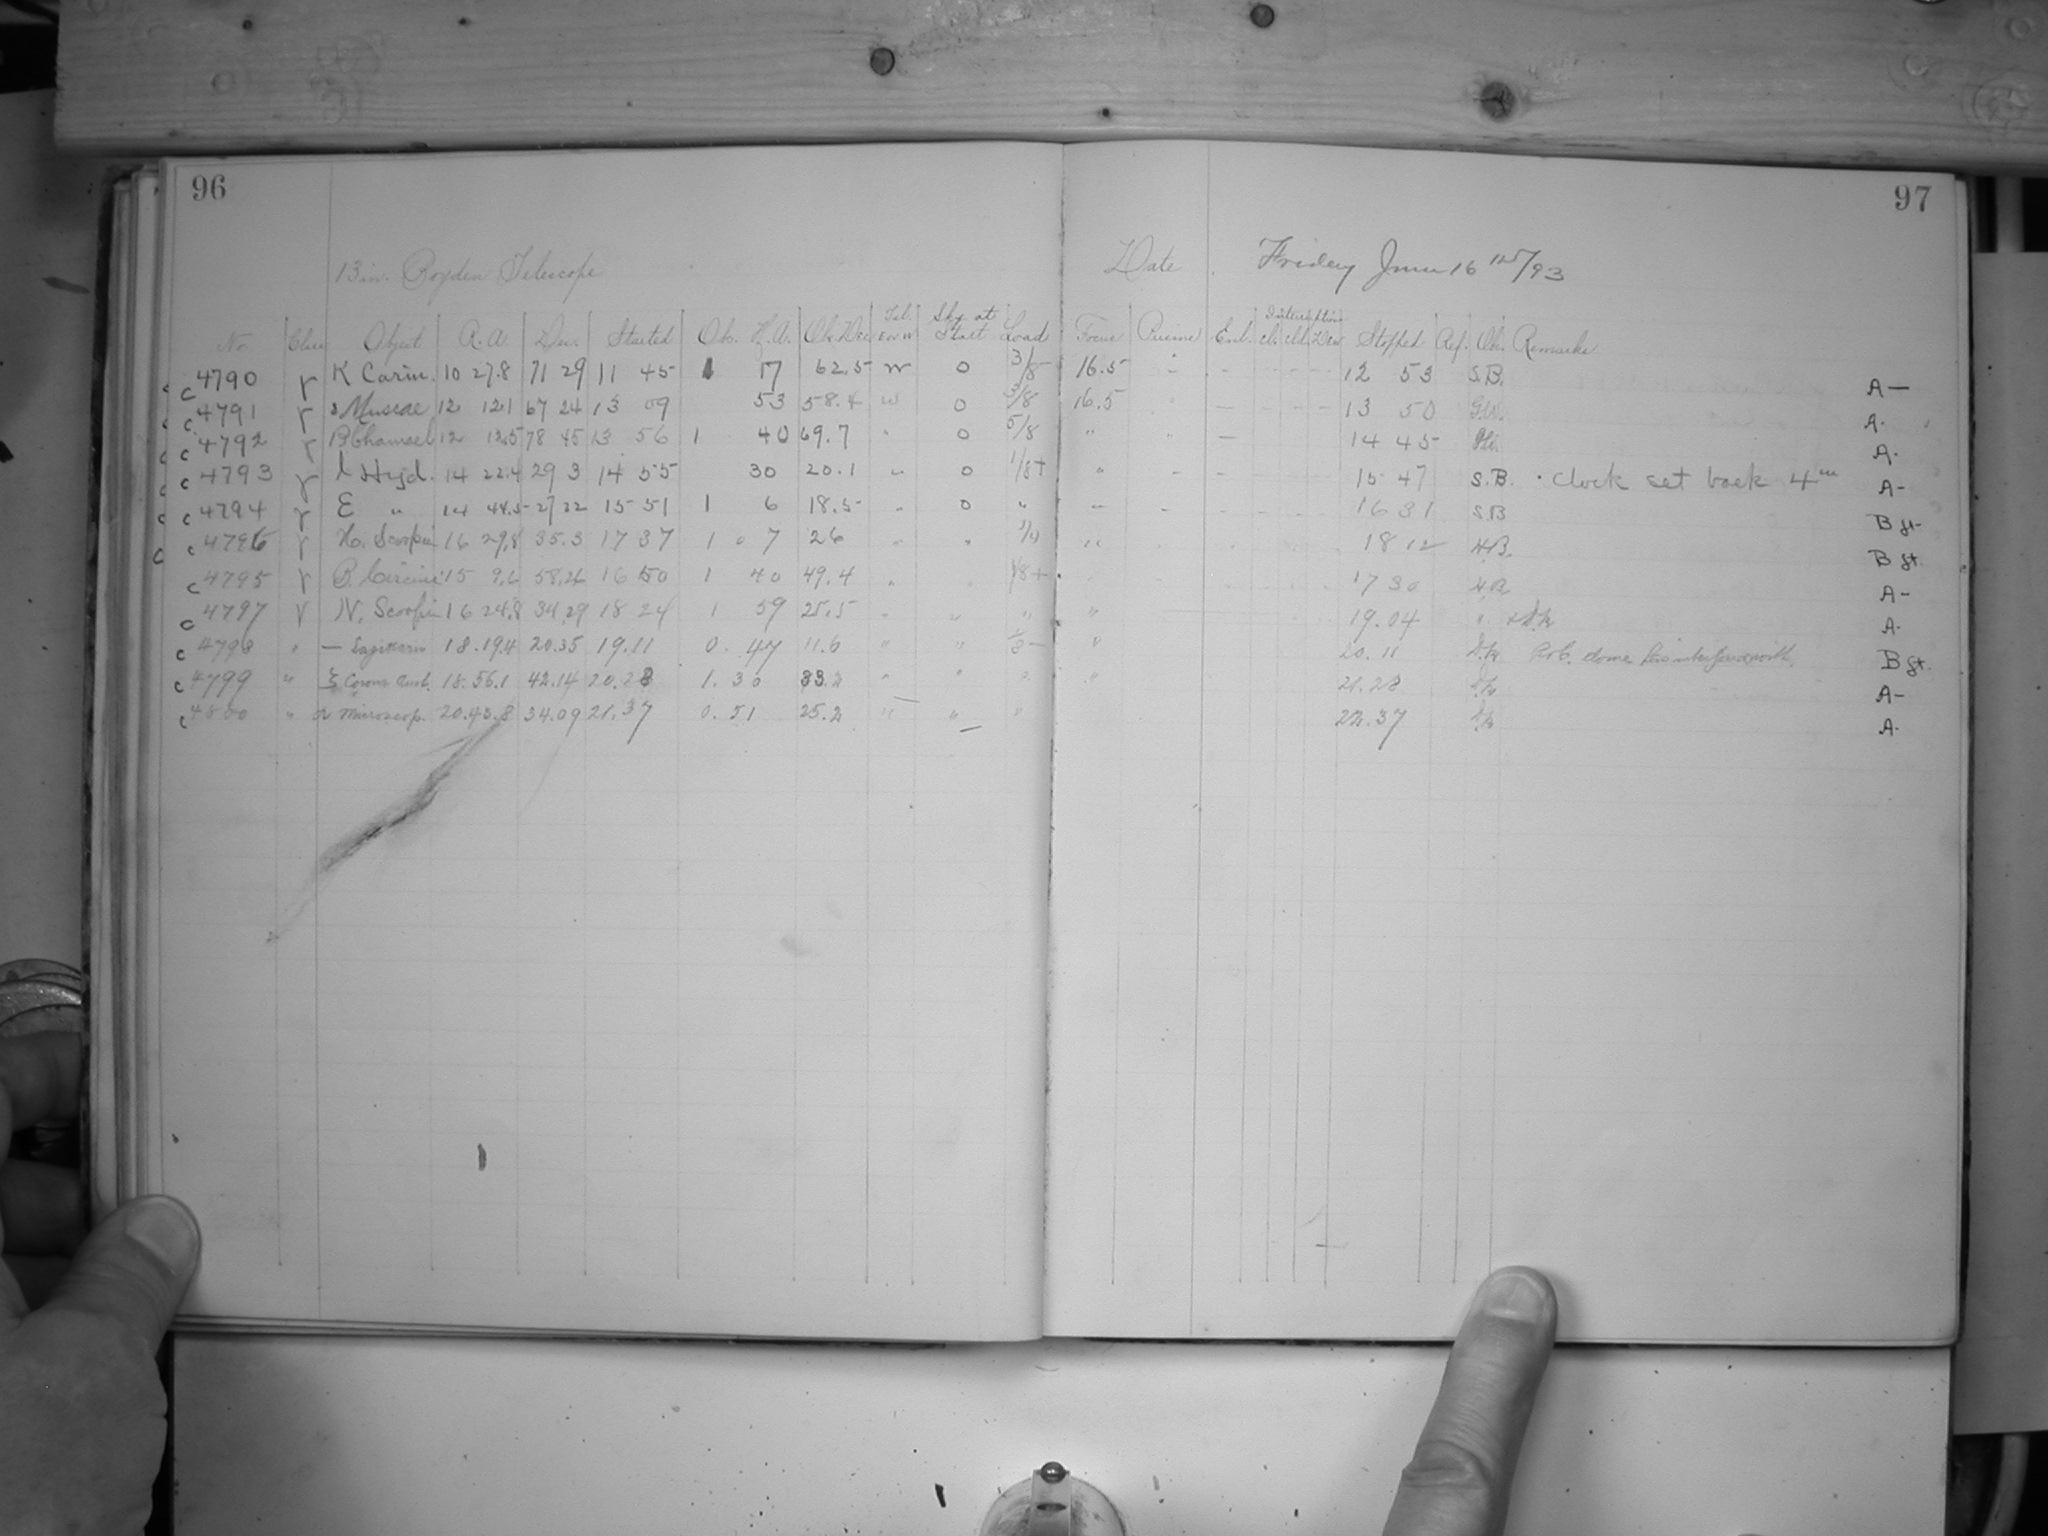 96
97
13 in. Boyden Telescope Date Friday June 16th/93
No Class Object R.A. Dec. Started Obs. H.A. Obs. Dec Tel. E or W Sky at Start Load Focus Prisms Exl. Interruptions Cl. Cld. Dew Stopped Ref. Obs. Remarks
c 4790 γ K Carin. 10 27.8 71 29 11 45 1 17 62.5 W 0 3/8 16.5 12 53 S.B. A—
c 4791 γ Muscae 12 12.1 67 24 13 09 53 58.4 W 0 3/8 16.5 " — 13 50 A.
c 4792 γ B Chamael 12 12.5 78 45 13 56 1 40 69.7 " 0 5/8 " " — 14 45 A.
c 4793 γ Hyd. 14 22.4 29 3 14 55 30 20.1 " 0 1/8+ " - - 15 47 S.B. · Clock set back 4m A-
c 4794 γ E " 14 44.5 27 22 15 51 1 6 18.5 " 0 " 16 31 S.B B
c 4796 γ H. Scorpii 16 29.8 35.3 17 37 1 7 26 " " " 18 12 B
c 4795 γ B. Circini 15 9.6 58.26 16 50 1 40 49.4 " 1/8+ 17 30 A-
c 4797 γ N. Scorpii 16 24.8 34.29 18 24 1 59 25.5 " " " " 19.04 " A.
c 4798 " — Sagittarii 18.19.4 20.35 19.11 0. 47 11.6 " " " 20.11 dome B
c 4799 " ξ Corona Aust. 18.56.1 42.14 20.28 1. 30 33.2 " " " " 21.28 A-
c 4800 " α Microscop. 20.43.8 34.09 21.37 0. 51 25.2 " " " 22.37 A.